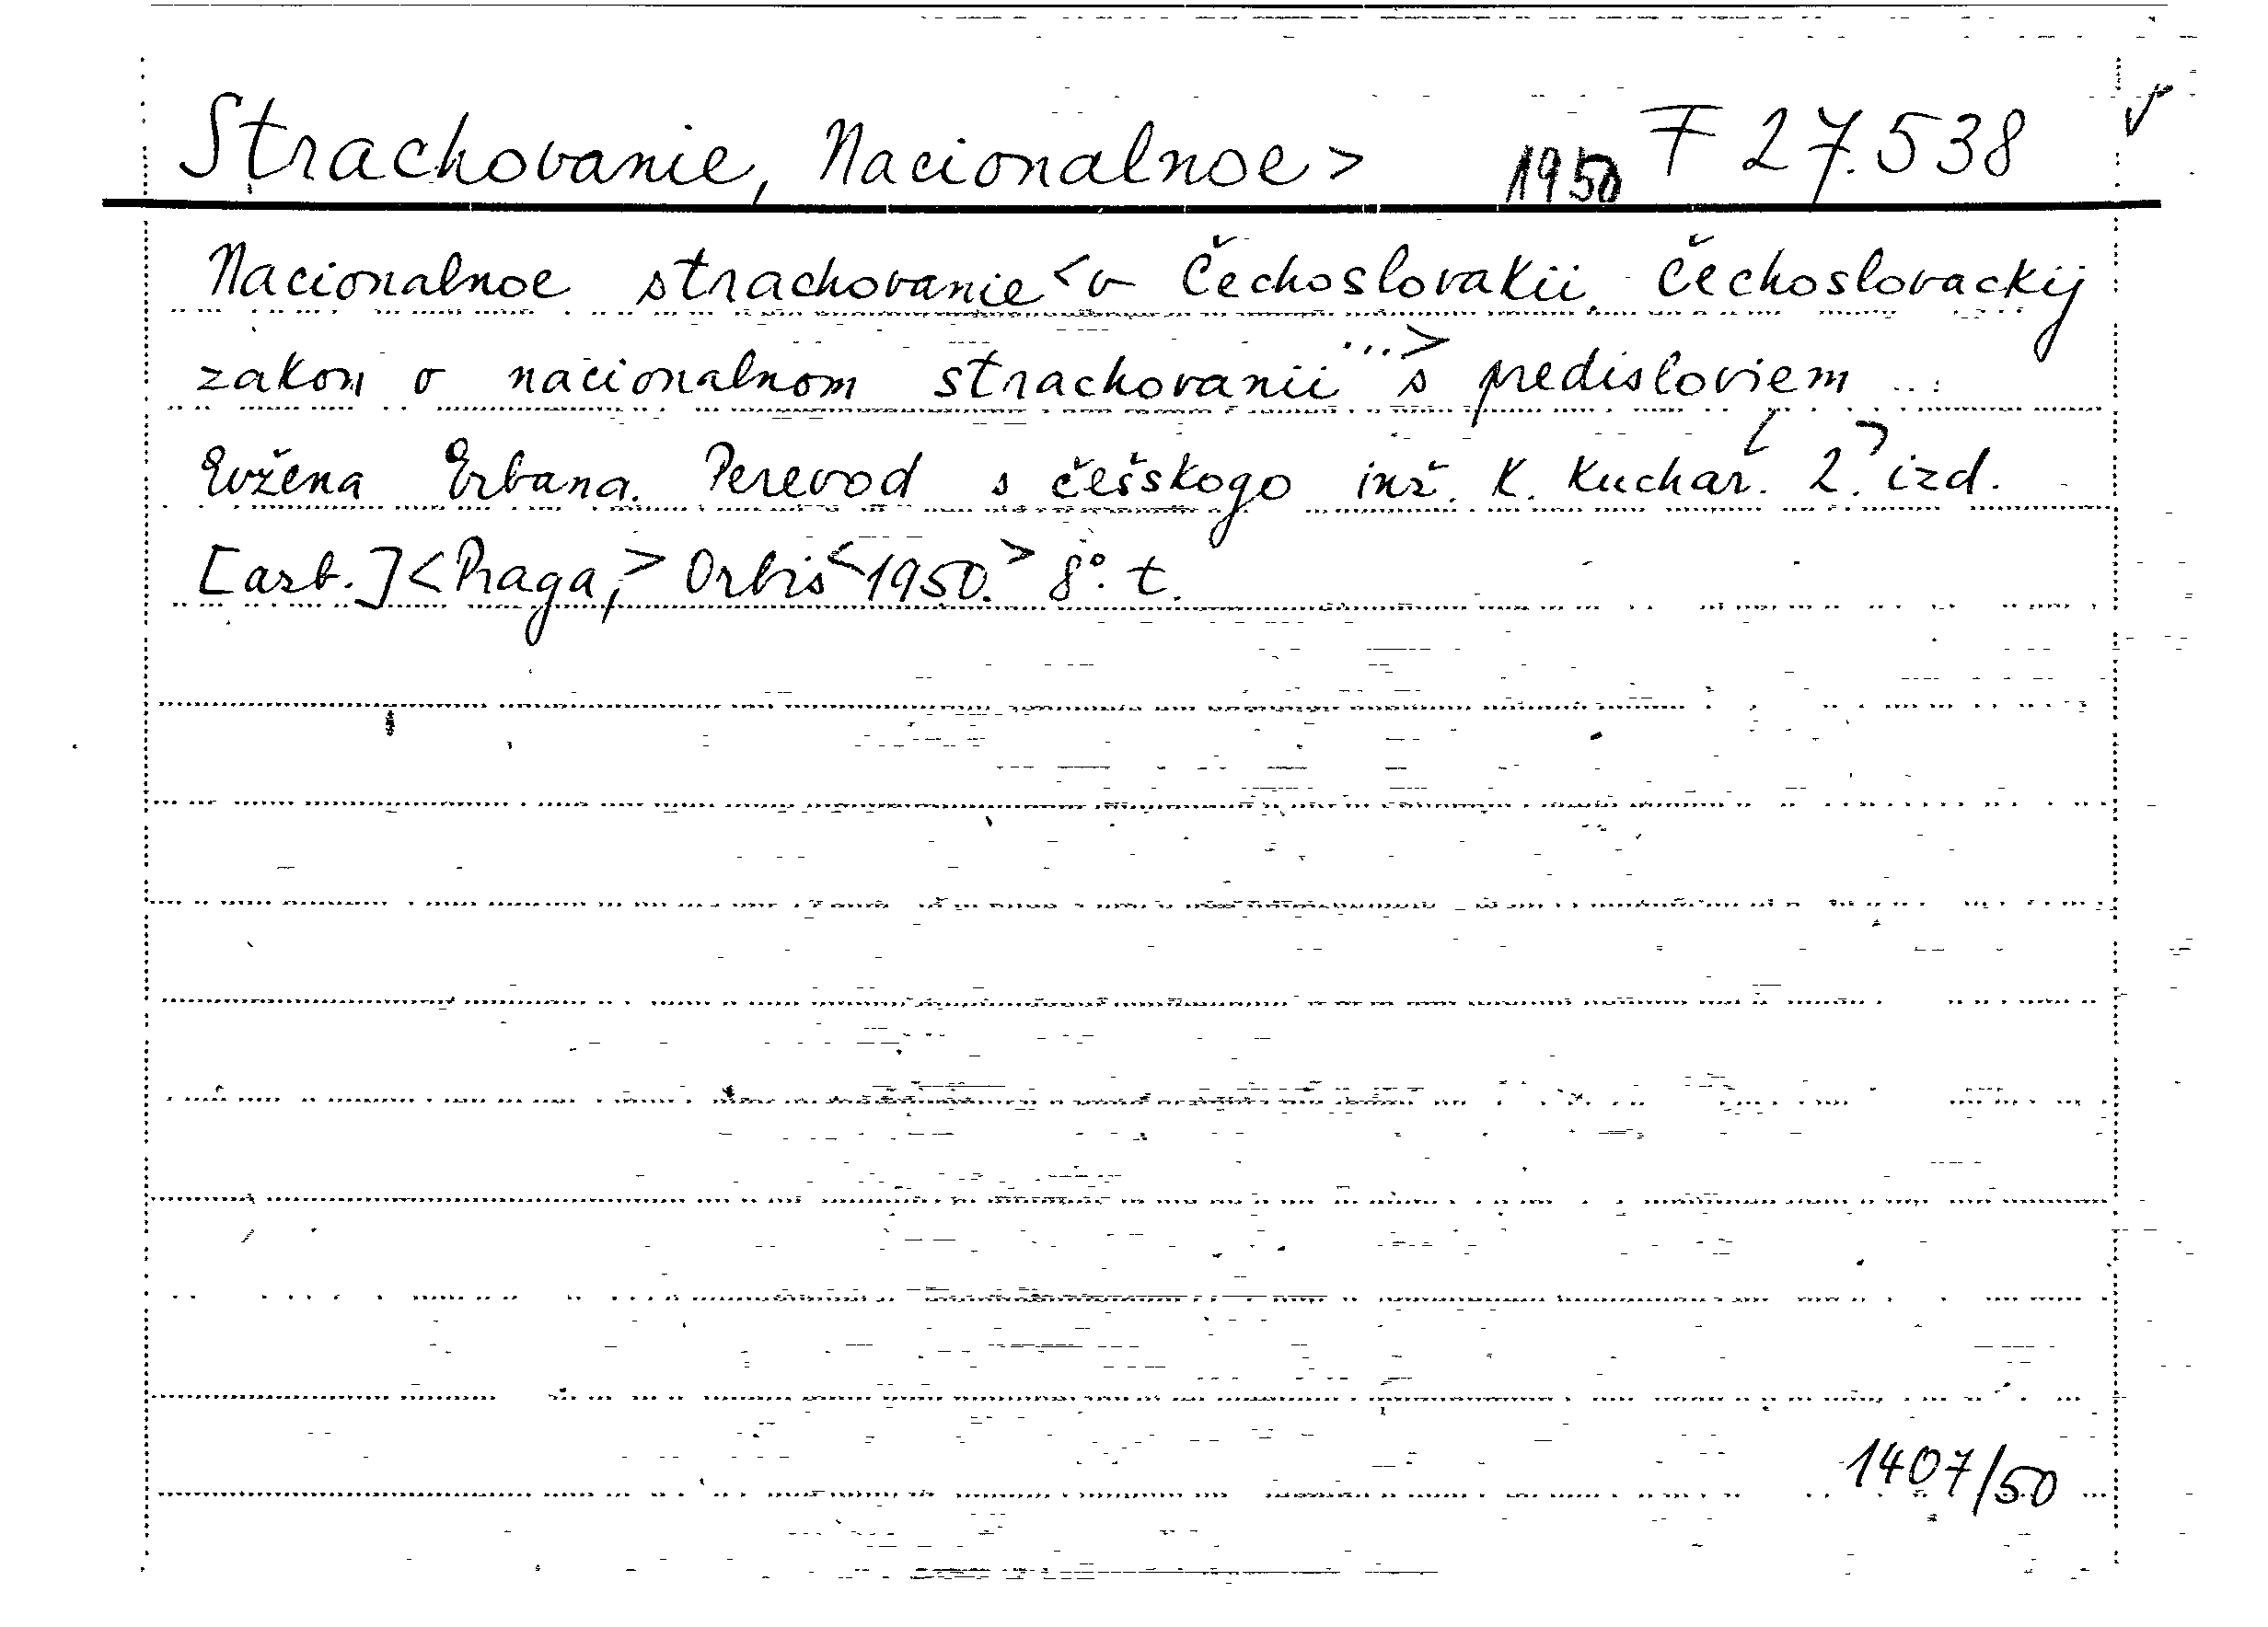 Strachovanie, Nacionalnoe > 1950 F 27.538 ✓
Nacionalnoe strachovanie < v Čechoslovakii. Čechoslovackij
zakon o nacionalnom strachovanii ...> s predisloviem ...
Evžena Erbana. Perevod s češskogo inž. K. Kuchař. [2.] izd.
[asb.] < Praga, > Orbis < 1950. > 8°. t.
1407/50